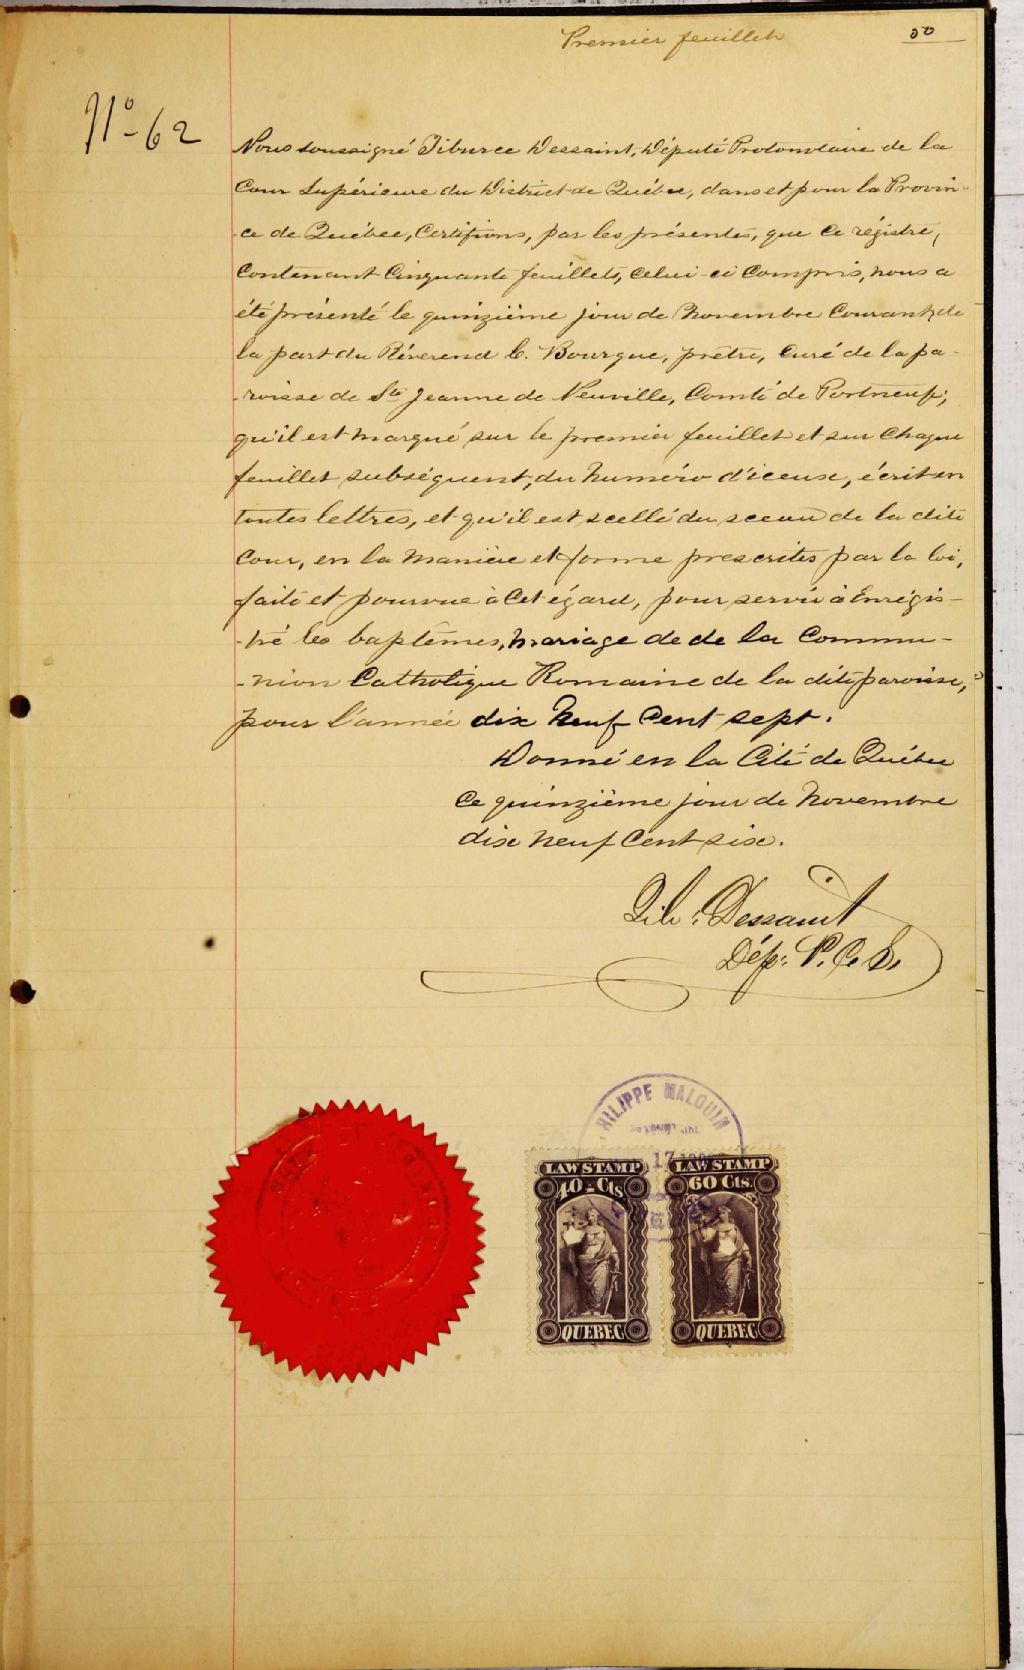 Premier feuillet
50
No- 62
Nous soussigné Tiburce Dessaint, Député Protonotaire de la
Cour Supérieure du District de Québec, dans et pour la Provin-
-ce de Québec, Certifions, par les présentes, que ce régistre,
Contenant Cinquante feuillets, celui-ci Compris, nous a
été présenté le quinzième jour de Novembre Courant, de
la part du Réverend C. Bourque, prêtre, Curé de la pa-
-roisse de Ste Jeanne de Neuville, Comté de Portneuf;
qu'il est marqué sur le premier feuillet et sur Chaque
feuillet subséquent, du Numéro d'iceux, écrit en
toutes lettres, et qu'il est scellé du sceau de la dite
Cour, en la Manière et forme prescrites par la loi,
faite et pourvue à Cet égard, pour servir à Enrégis-
-tré les baptêmes, Mariage de de la Commu-
-nion Catholique Romaine de la dite paroisse,
pour l'année dix Neuf Cent sept.
Donné en la Cité de Québec
Ce quinzième jour de Novembre
dix Neuf Cent six.
Tib: Dessaint
Dép: P. C. S.
PHILIPPE MALOUIN
17
LAW STAMP LAW STAMP
40-Cts 60 Cts.
QUEBEC QUEBEC